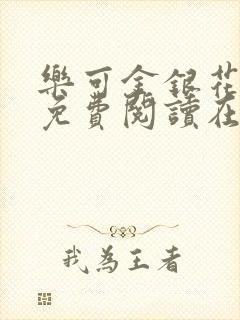 樂可金銀花
免費閱讀在
我為王者